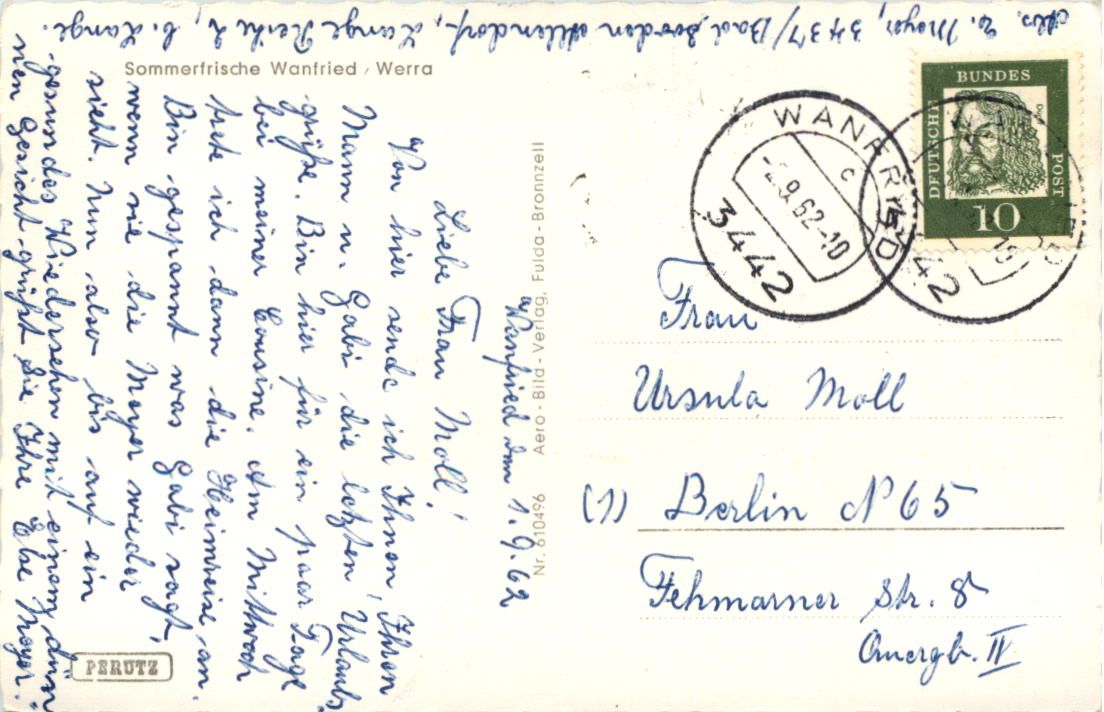 Sommerfrische Wanfried / Werra
Wanfried den 1.9.62
Liebe Frau Moll!
Von hier sende ich Ihnen, Ihren
Mann u. Gabi die letzten Urlaubs
grüße. Bin hier für ein paar Tage
bei meiner Cousine. Am Mittwoch
trete ich dann die Heimreise an.
Bin gespannt was Gabi sagt,
wenn sie die Meyer wieder
sieht. Nun also bis auf ein
gesundes Wiedersehen mit einem dün
nen Gesicht grüßt Sie Ihre Else Meyer.
Abs. E. Meyer, 3437/Bad Sooden Allendorf, Lange Reihe 2, b. Lange.
Nr. 610496 Aero-Bild-Verlag, Fulda-Bronnzell
PERUTZ
DEUTSCHE
BUNDES
POST
10
WANFRIED
c
-2.9.62-10
3442
WANFRIED
3442
Frau
Ursula Moll
(1) Berlin N 65
Fehmarner Str. 8
Quergb. IV